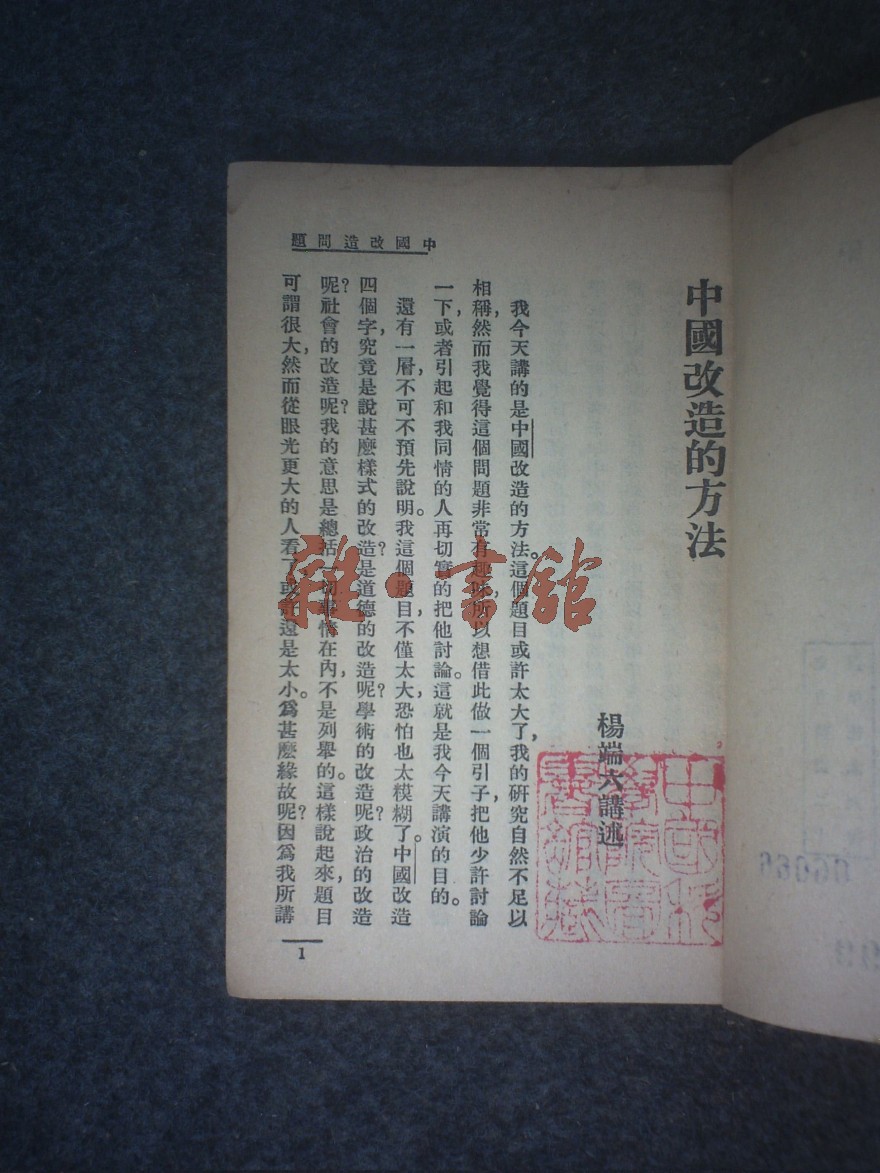 中國改造問題
中國改造的方法
楊端六講述
我今天講的是中國改造的方法。這個題目或許太大了,我的研究自然不足以
相稱,然而我覺得這個問題非常有趣味,所以想借此做一個引子,把他少許討論
一下,或者引起和我同情的人再切實的把他討論。這就是我今天講演的目的。
還有一層,不可不預先說明。我這個題目,不僅太大,恐怕也太模糊了。中國改造
四個字,究竟是說甚麽樣式的改造?是道德的改造呢?學術的改造呢?政治的改造
呢?社會的改造呢?我的意思是總括一切事情在內,不是列舉的。這樣說起來,題目
可謂很大,然而從眼光更大的人看了,或許還是太小。爲甚麽緣故呢?因爲我所講
1
雜·書館
06066